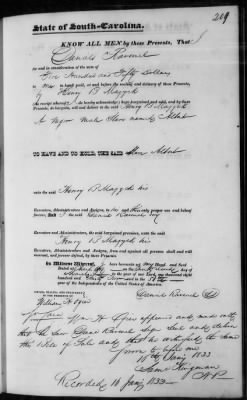 209
State of South-Carolina.
KNOW ALL MEN by these Presents, That I
Daniel Ravenel
for and in consideration of the sum of
Five Hundred and Fifty Dollars
to me in hand paid, at and before the sealing and delivery of these Presents,
by Henry B Mazyck
(the receipt whereof I do hereby acknowledge) have bargained and sold, and by these
Presents, do bargain, sell and deliver to the said Henry B Mazyck
A Negro Male Slave named Albert
TO HAVE AND TO HOLD, THE SAID Slave Albert
unto the said Henry B Mazyck his
Executors, Administrators and Assigns, to his and their only proper use and behoof
forever. And I the said Daniel Ravenel my
Executors and Administrators, the said bargained premises, unto the said
Henry B Mazyck his
Executors, Administrators and Assigns, from and against all persons shall and will
warrant, and forever defend by these Presents.
In Witness Whereof, I have hereunto set my Hand and Seal
Dated at
on the day of
in the year of our Lord one thousand eight
hundred and and in the year of the
Independence of the United States of America.
SIGNED, SEALED, AND DELIVERED
IN THE PRESENCE OF
Daniel Ravenel
William
appeared and made oath
that he saw Daniel Ravenel sign seal and deliver
the Bill of Sale and that he witnessed the same
Sworn to before me
16th Jany 1833
Recorded 16 Jany 1833